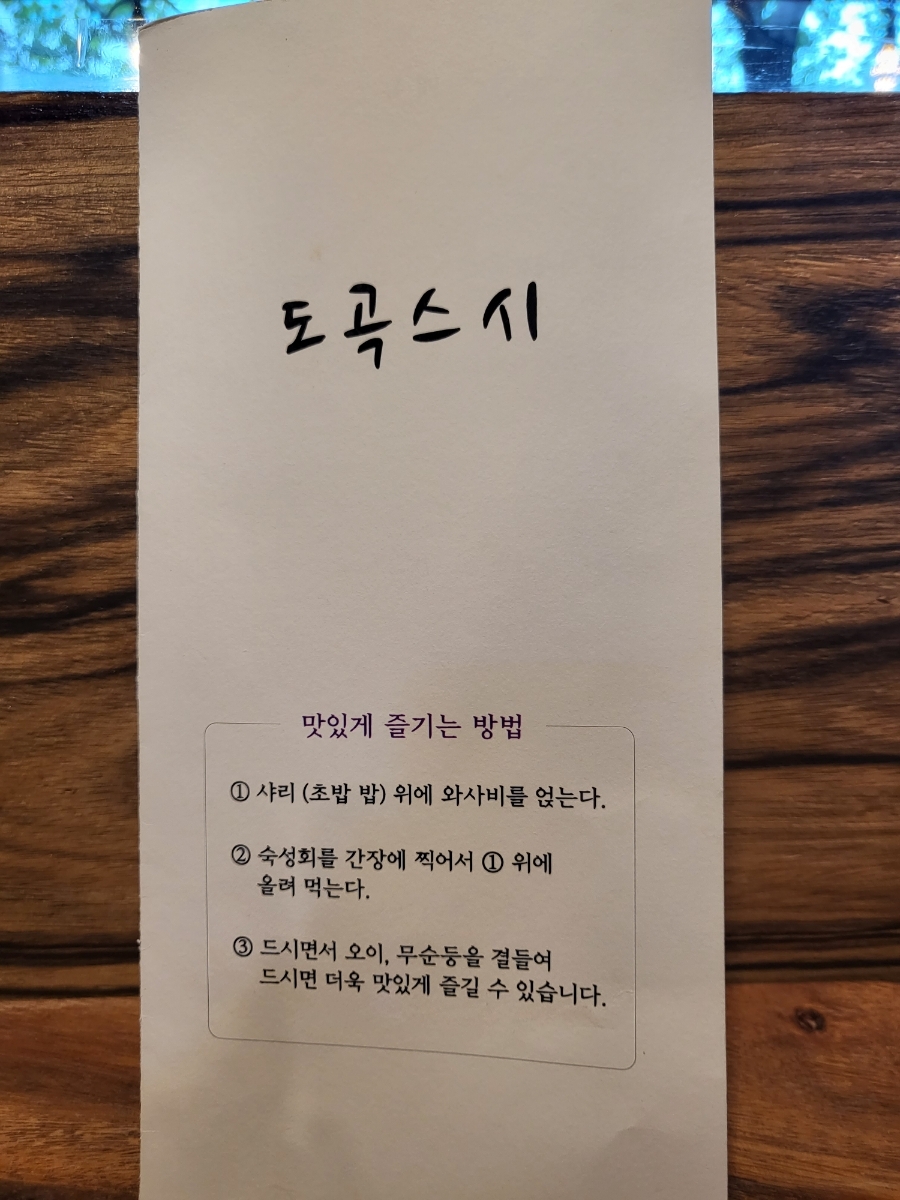 도곡스시
맛있게 즐기는 방법
① 샤리 (초밥 밥) 위에 와사비를 얹는다.
② 숙성회를 간장에 찍어서 ① 위에
올려 먹는다.
③ 드시면서 오이, 무순등을 곁들여
드시면 더욱 맛있게 즐길 수 있습니다.